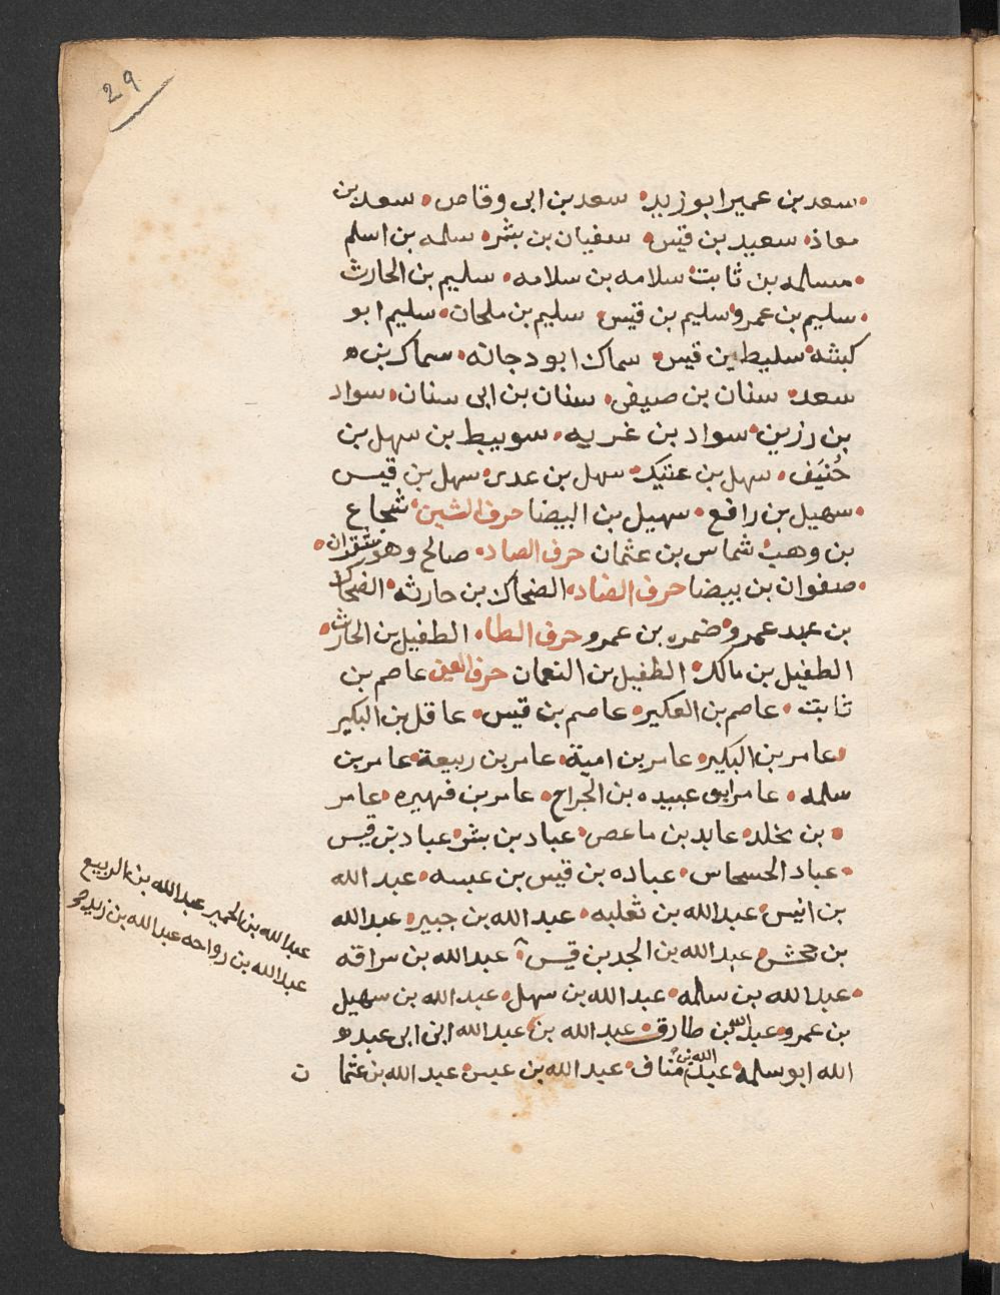 29
سعد بن عمير ابو زيد • سعد بن ابى وقاص • سعد بن
معاذ • سعيد بن قيس • سفيان بن بشر • سلمه بن اسلم
• مسلمه بن ثابت • سلامه بن سلامه • سليم بن الحارث
• سليم بن عمرو • سليم بن قيس • سليم بن ملحان • سليم ابو
كبشه • سليط بن قيس • سماك ابو دجانه • سماك بن
سعد • سنان بن صيفى • سنان بن ابى سنان • سواد
بن رزين • سواد بن غزيه • سويبط بن سهل بن
حُنَيف • سهل بن عتيك • سهل بن عدى • سهل بن قيس
• سهيل بن رافع • سهيل بن البيضا حرف الشين • شجاع
بن وهب • شماس بن عثمان حرف الصاد • صالح وهو شقران •
• صفوان بن بيضا حرف الضاد • الضحاك بن حارثه • الضحاك
بن عبد عمرو • ضمره بن عمرو حرف الطا • الطفيل بن الحارث •
الطفيل بن مالك • الطفيل بن النعمان حرف العين عاصم بن
ثابت • عاصم بن العكير • عاصم بن قيس • عاقل بن البكير
• عامر بن البكير • عامر بن امية • عامر بن ربيعة • عامر بن
سلمه • عامر ابو عبيده بن الجراح • عامر بن فهيره • عامر
• بن مخلد • عايد بن ماعص • عباد بن بشر • عباد بن قيس
• عباد الحسحاس • عباده بن قيس بن عبسه • عبد الله
بن انيس • عبد الله بن ثعلبه • عبد الله بن جبير • عبد الله
بن جحش • عبد الله بن الجد بن قيس • عبد الله بن سراقه
• عبد الله بن سلمه • عبد الله بن سهل • عبد الله بن سهيل
بن عمرو • عبد الله بن طارق • عبد الله بن عبد الله ابن ابى عبد
الله ابو سلمه • عبد الله بن مناف • عبد الله بن عبس • عبد الله بن عثما ن
عبد الله بن الحمير عبد الله بن الربيع
عبد الله بن رواحه عبد الله بن زيد